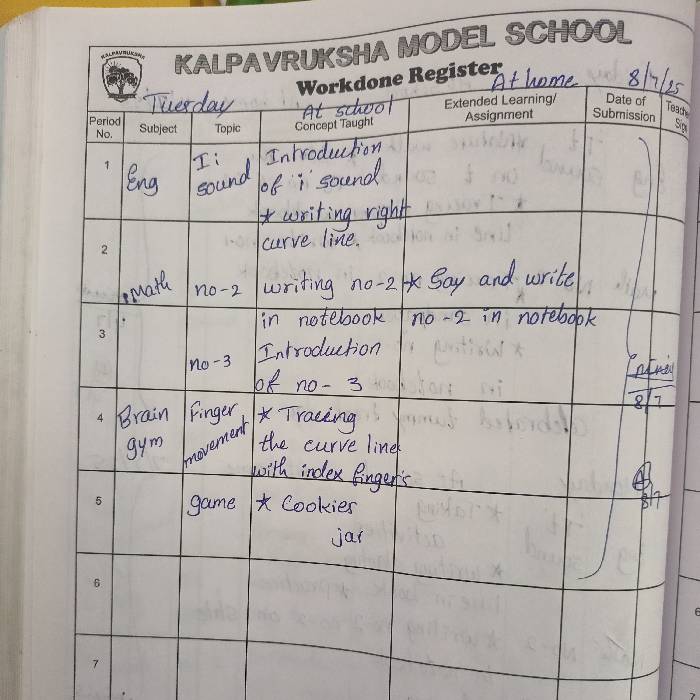 KALPAVRUKSHA
KALPAVRUKSHA MODEL SCHOOL
Workdone Register
Tuesday
At school
At home
8/7/25
Period No.
Subject
Topic
Concept Taught
Extended Learning/ Assignment
Date of Submission
1
Eng
Ii sound
Introduction
of 'i' sound
* writing right
curve line.
2
Math
no-2
writing no-2
in notebook
* Say and write
no-2 in notebook
3
no-3
Introduction
of no-3
8/7
4
Brain gym
Finger movement
* Tracing
the curve line
with index finger's
8/7
5
game
* Cookies
jar
6
7